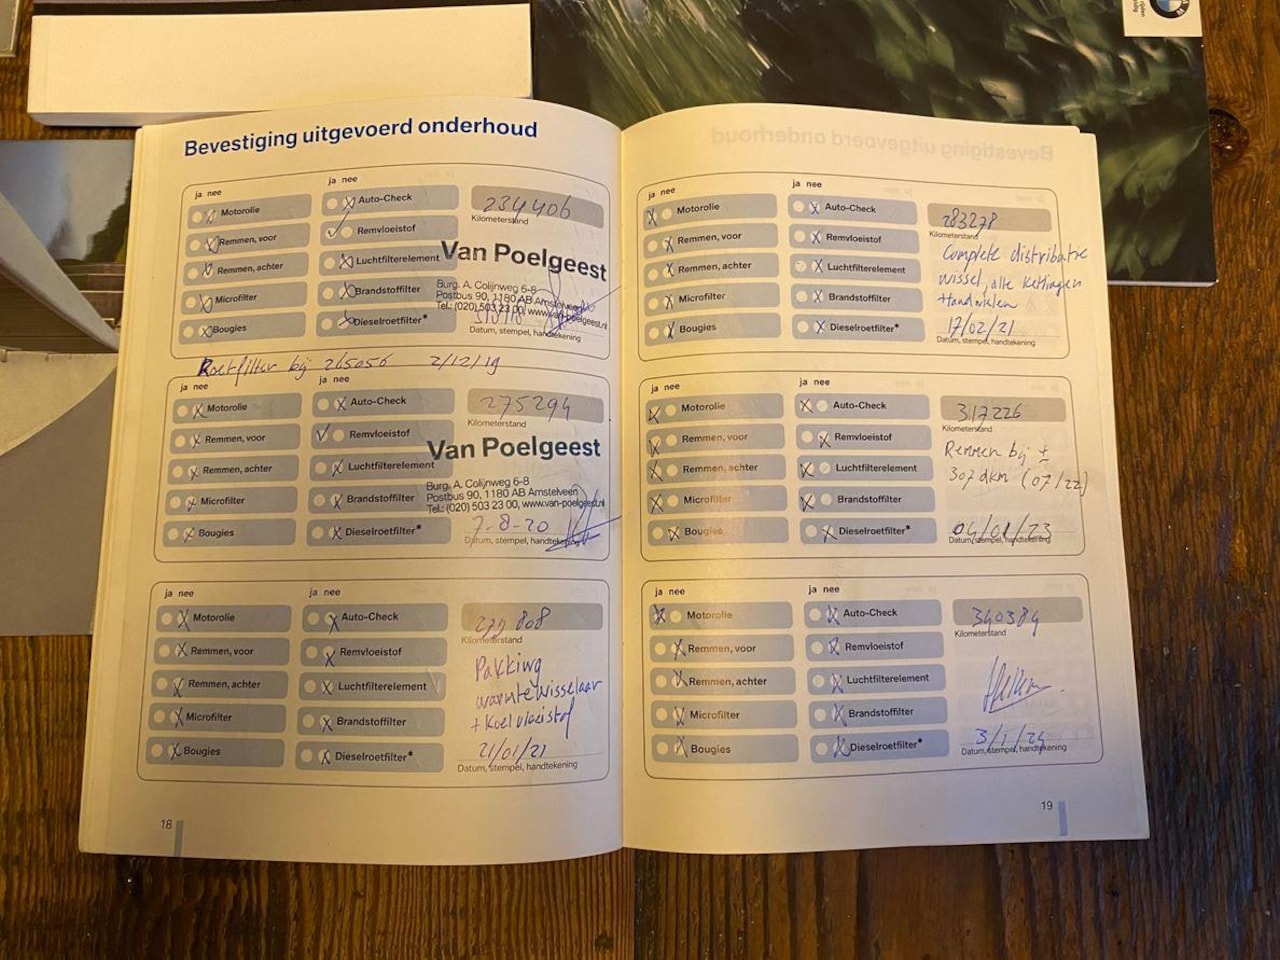 Bevestiging uitgevoerd onderhoud
ja nee
ja nee
Motorolie
Auto-Check
234406
Kilometerstand
Remmen, voor
Remvloeistof
Remmen, achter
Luchtfilterelement
Van Poelgeest
Burg. A. Colijnweg 6-8
Microfilter
Brandstoffilter
Postbus 90, 1180 AB Amstelveen
Tel.: (020) 503 23 00, www.van-poelgeest.nl
Bougies
Dieselroetfilter*
Datum, stempel, handtekening
Roetfilter bij 265056 2/12/19
ja nee
ja nee
Motorolie
Auto-Check
275294
Kilometerstand
Remmen, voor
Remvloeistof
Van Poelgeest
Remmen, achter
Luchtfilterelement
Burg. A. Colijnweg 6-8
Microfilter
Brandstoffilter
Postbus 90, 1180 AB Amstelveen
Tel.: (020) 503 23 00, www.van-poelgeest.nl
Bougies
Dieselroetfilter*
7-8-20
Datum, stempel, handtekening
ja nee
ja nee
Motorolie
Auto-Check
Kilometerstand
Remmen, voor
Remvloeistof
Pakking
Remmen, achter
Luchtfilterelement
warmtewisselaar
Microfilter
Brandstoffilter
+ Koelvloeistof
Bougies
Dieselroetfilter*
21/01/21
Datum, stempel, handtekening
18
ja nee
ja nee
Motorolie
Auto-Check
283278
Kilometerstand
Remmen, voor
Remvloeistof
Complete distributie
Remmen, achter
Luchtfilterelement
wissel, alle kettingen
Microfilter
Brandstoffilter
Bougies
Dieselroetfilter*
17/02/21
Datum, stempel, handtekening
ja nee
ja nee
Motorolie
Auto-Check
317226
Kilometerstand
Remmen, voor
Remvloeistof
Remmen bij ±
Remmen, achter
Luchtfilterelement
307dkm (07/22)
Microfilter
Brandstoffilter
Bougies
Dieselroetfilter*
04/01/23
Datum, stempel, handtekening
ja nee
ja nee
Motorolie
Auto-Check
340384
Kilometerstand
Remmen, voor
Remvloeistof
Remmen, achter
Luchtfilterelement
Microfilter
Brandstoffilter
Bougies
Dieselroetfilter*
3/1/24
Datum, stempel, handtekening
19